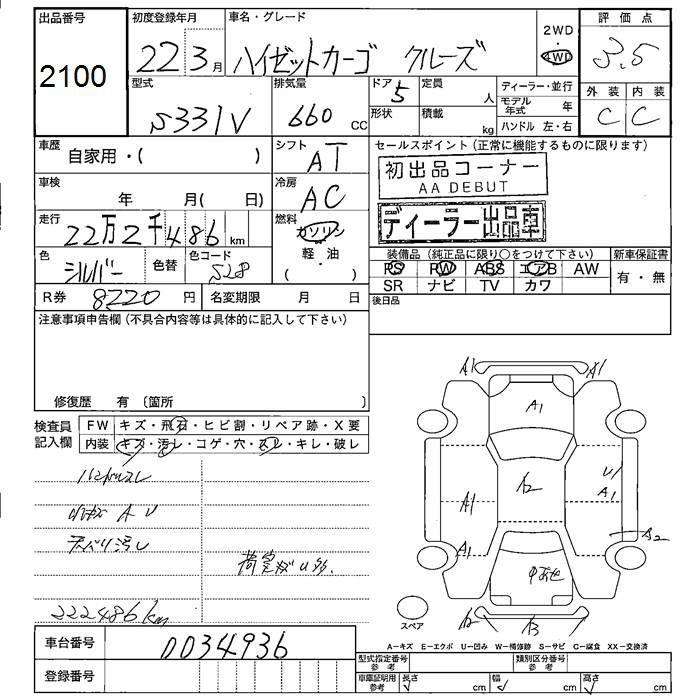 出品番号
2100
初度登録年月
22 3月
車名・グレード
ハイゼットカーゴ クルーズ
2WD
・
4WD
評価点
3.5
外装 内装
C C
型式
S331V
排気量
660 CC
ドア 5
形状
定員
人
積載
kg
ディーラー・並行
モデル年式 年
ハンドル 左・右
車歴
自家用・( )
シフト
AT
セールスポイント(正常に機能するものに限ります)
初出品コーナー
AA DEBUT
ディーラー出品車
車検
年 月( 日)
冷房
AC
走行
22万2千486km
燃料
ガソリン
軽・油
( )
色
シルバー
色替
色コード
S28
装備品(純正品に限り○をつけて下さい)
PS PW ABS エアB AW
SR ナビ TV カワ
新車保証書
有・無
R券 8220円
名変期限 月 日
後日品
注意事項申告欄(不具合内容等は具体的に記入して下さい)
修復歴 有〔箇所 〕
検査員記入欄
FW キズ・飛石・ヒビ割・リペア跡・X要
内装 キズ・汚レ・コゲ・穴・スレ・キレ・破レ
ハンドルスレ
内キズ A U
天バリ汚レ
荷室キズU多.
222486km
A1 A1
A1
A2
U1
A1
A1
A1
A2
A2
A3
スペア
A=キズ E=エクボ U=凹み W=補修跡 S=サビ C=腐食 XX=交換済
車台番号
0034936
登録番号
型式指定番号 参考
類別区分番号 参考
車庫証明用 参考
長さ cm
幅 cm
高さ cm